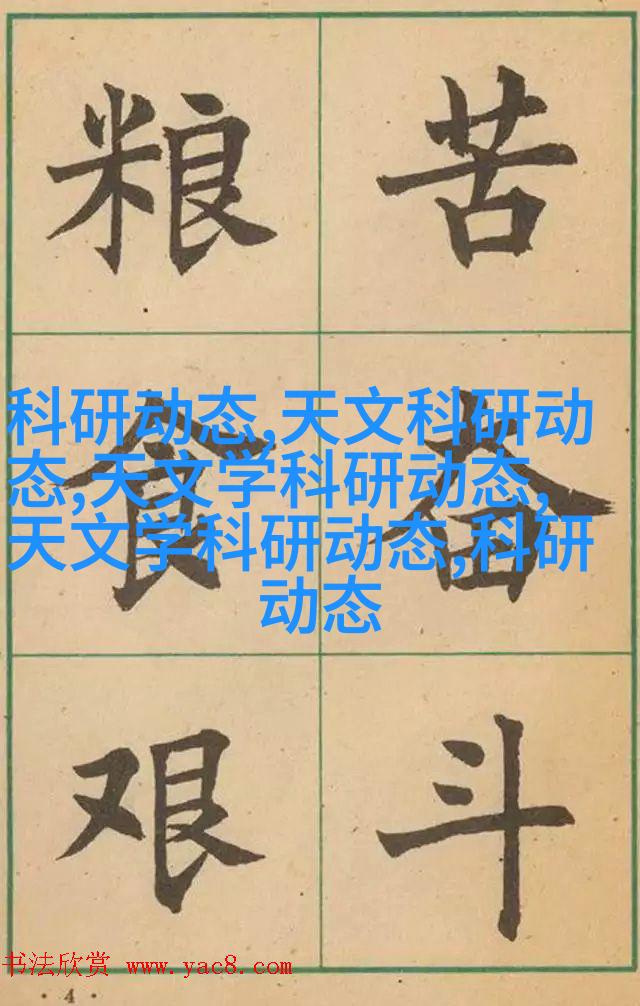 粮食艰
苦奋斗
科研动态,天文科研动
态,天文学科研动态,
天文学科研动态,科研
动态
书法欣赏 www.yac8.com
· 4 ·